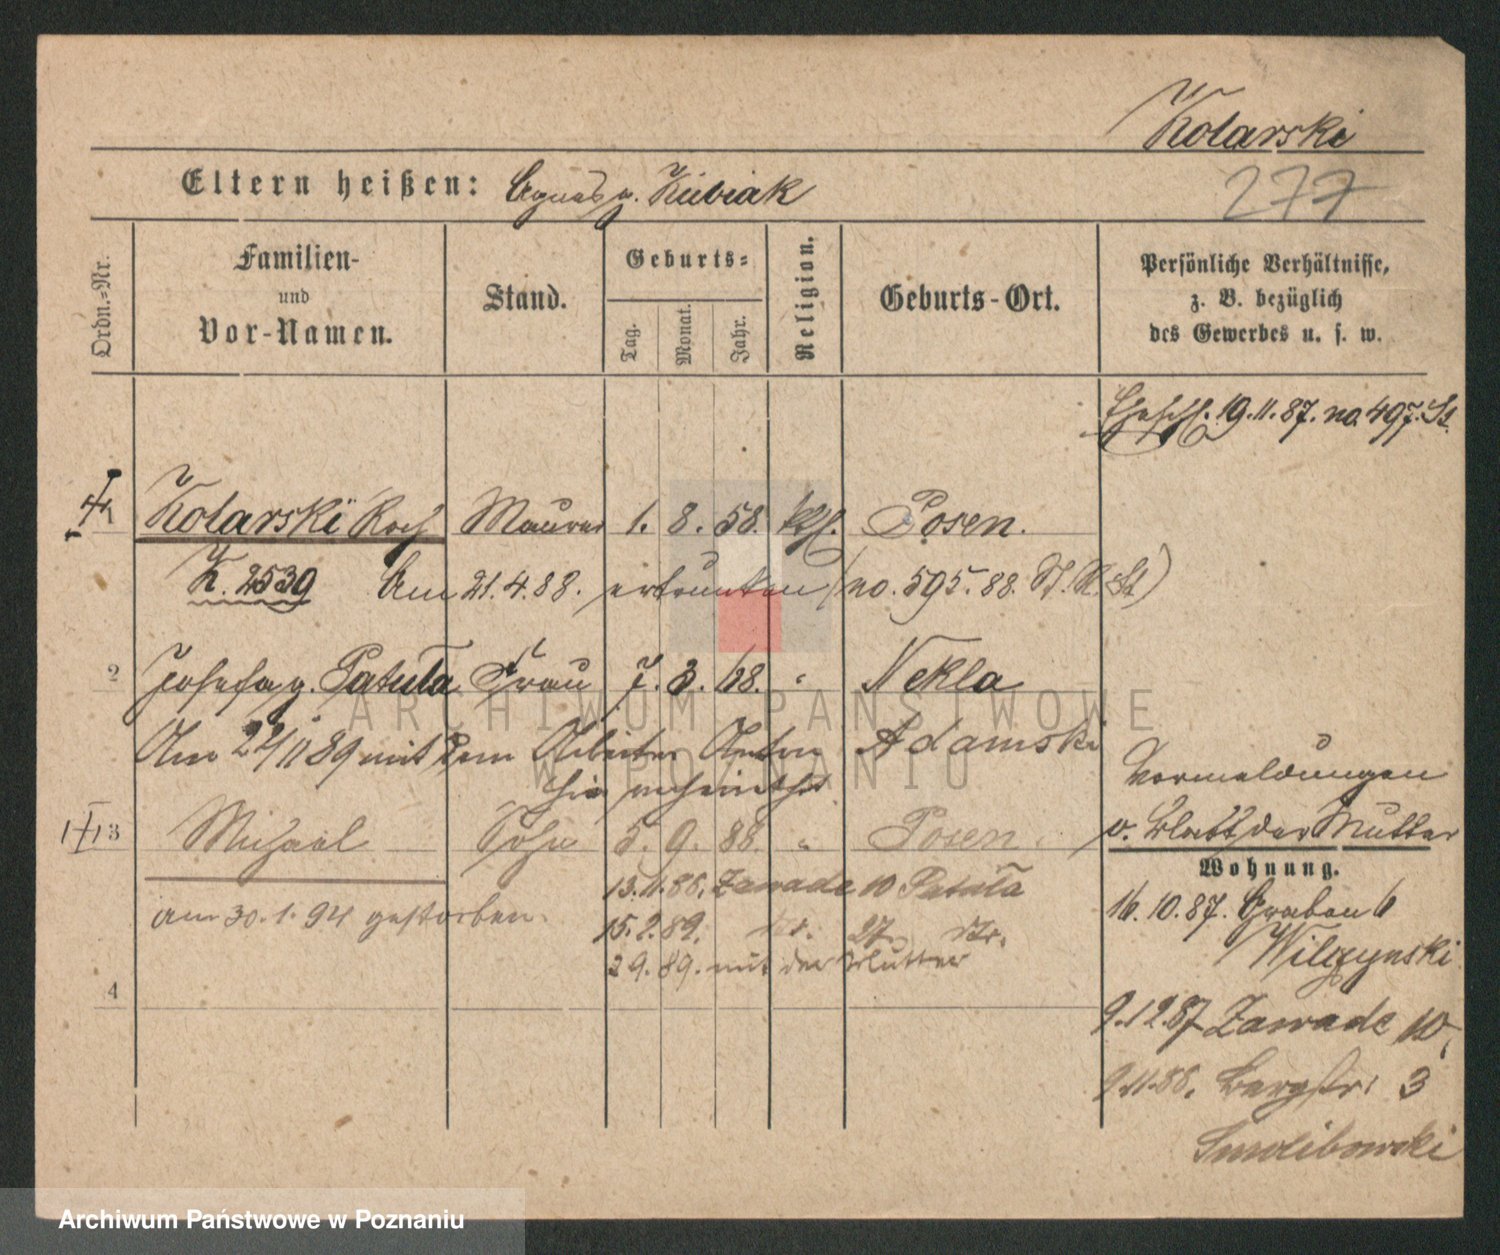 Kolarski
277
Eltern heißen: Agnes g. Kubiak
Ordn.=Nr.
Familien-
und
Vor-Namen.
Stand.
Geburts=
Tag.
Monat.
Jahr.
Religion.
Geburts-Ort.
Persönliche Verhältnisse,
z. B. bezüglich
des Gewerbes u. s. w.
Eheschl. 19.11.87. no. 497. St.
1 Kolarski Roch Maurer 1. 8. 58. kth. Posen.
K. 2539 Am 21.4.88. ertrunken (no. 595. 88. St. A. St)
2 Josefa g. Patuła Frau 7. 3. 68. " Nekla
Am 24/11 89 mit dem Arbeiter Anton Adamski
hier verheirathet
Vormeldungen
v. Blatt der Mutter
3 Michael Sohn 5. 9. 88. " Posen.
am 30.1.94 gestorben.
13.11.88. Zawade 10 Patuła
15.2.89. 27
2 9. 89. mit der Mutter
4
Wohnung.
16.10.87. Graben 6
Wilczynski
9.12.87 Zawade 10,
9.11.88. Bergstr. 3
Smolibowski
ARCHIWUM PAŃSTWOWE
W POZNANIU
Archiwum Państwowe w Poznaniu